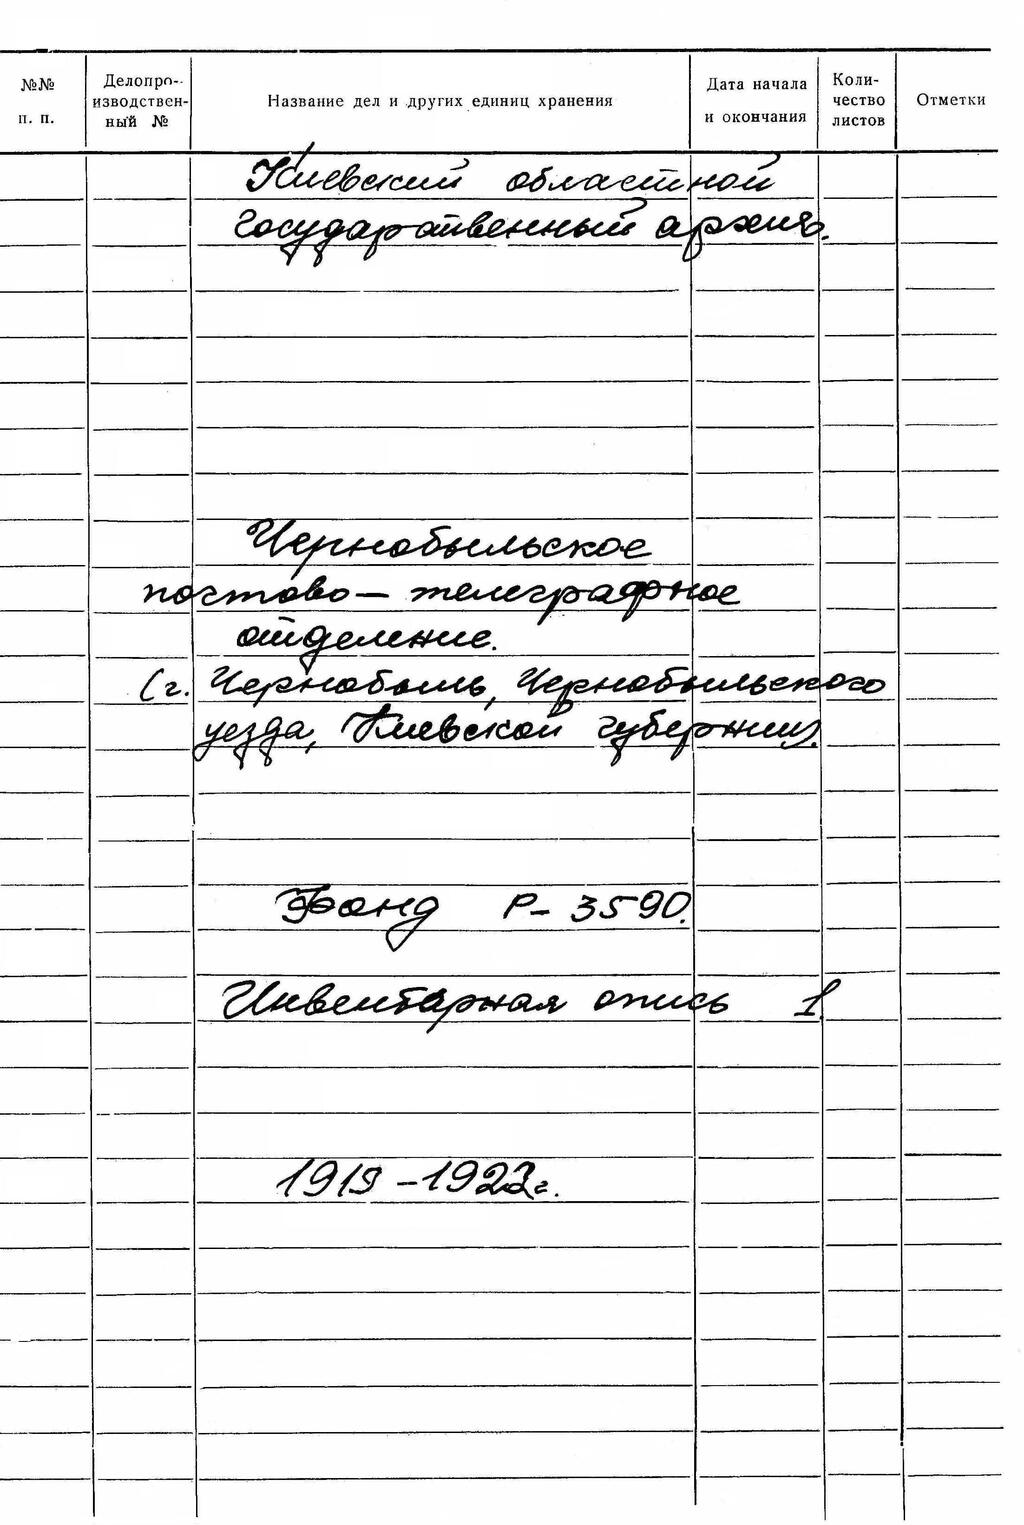 №№ п. п.
Делопро-изводствен-ный №
Название дел и других единиц хранения
Дата начала и окончания
Коли-чество листов
Отметки
Киевский областной
государственный архив.
Чернобыльское
почтово — телеграфное
отделение.
(г. Чернобыль, Чернобыльского
уезда, Киевской губернии).
Фонд Р- 3590.
Инвентарная опись 1.
1919 - 1922 г.